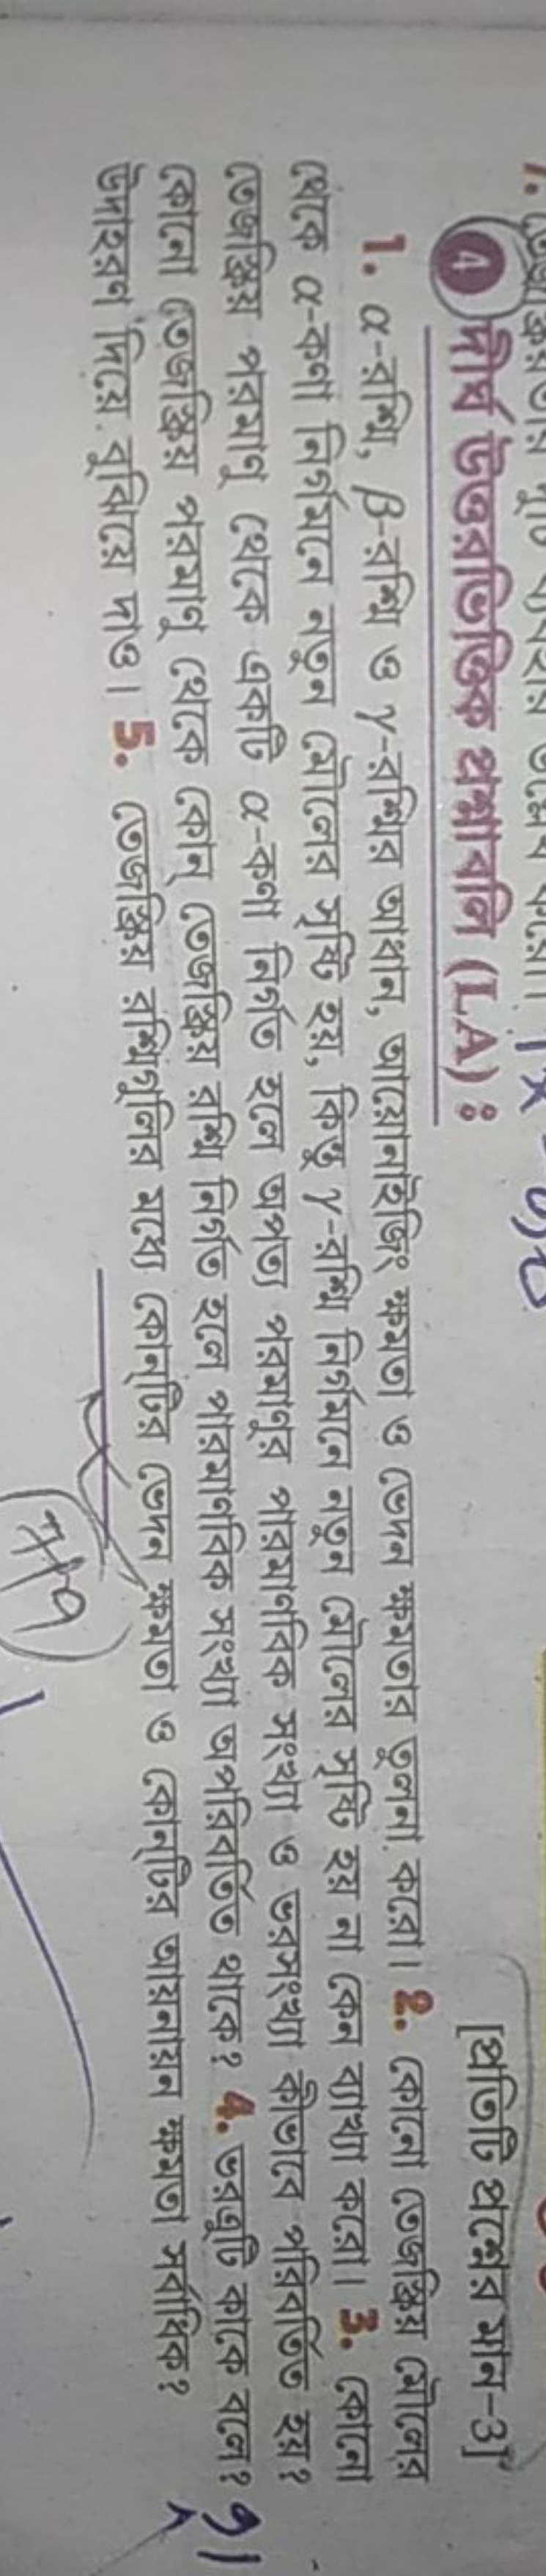 7. তেজস্ক্রিয়তার দুটি ব্যবহার উল্লেখ করো।
4 দীর্ঘ উত্তরভিত্তিক প্রশ্নাবলি (LA) :
[প্রতিটি প্রশ্নের মান-3]
1. α-রশ্মি, β-রশ্মি ও γ-রশ্মির আধান, আয়োনাইজিং ক্ষমতা ও ভেদন ক্ষমতার তুলনা করো। 2. কোনো তেজস্ক্রিয় মৌলের
থেকে α-কণা নির্গমনে নতুন মৌলের সৃষ্টি হয়, কিন্তু γ-রশ্মি নির্গমনে নতুন মৌলের সৃষ্টি হয় না কেন ব্যাখ্যা করো। 3. কোনো
তেজস্ক্রিয় পরমাণু থেকে একটি α-কণা নির্গত হলে অপত্য পরমাণুর পারমাণবিক সংখ্যা ও ভরসংখ্যা কীভাবে পরিবর্তিত হয়?
কোনো তেজস্ক্রিয় পরমাণু থেকে কোন্ তেজস্ক্রিয় রশ্মি নির্গত হলে পারমাণবিক সংখ্যা অপরিবর্তিত থাকে? 4. ভরত্রুটি কাকে বলে?
উদাহরণ দিয়ে বুঝিয়ে দাও। 5. তেজস্ক্রিয় রশ্মিগুলির মধ্যে কোন্‌টির ভেদন ক্ষমতা ও কোন্‌টির আয়নায়ন ক্ষমতা সর্বাধিক?